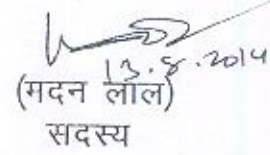 13.8.2014
(मदन लाल)
सदस्य